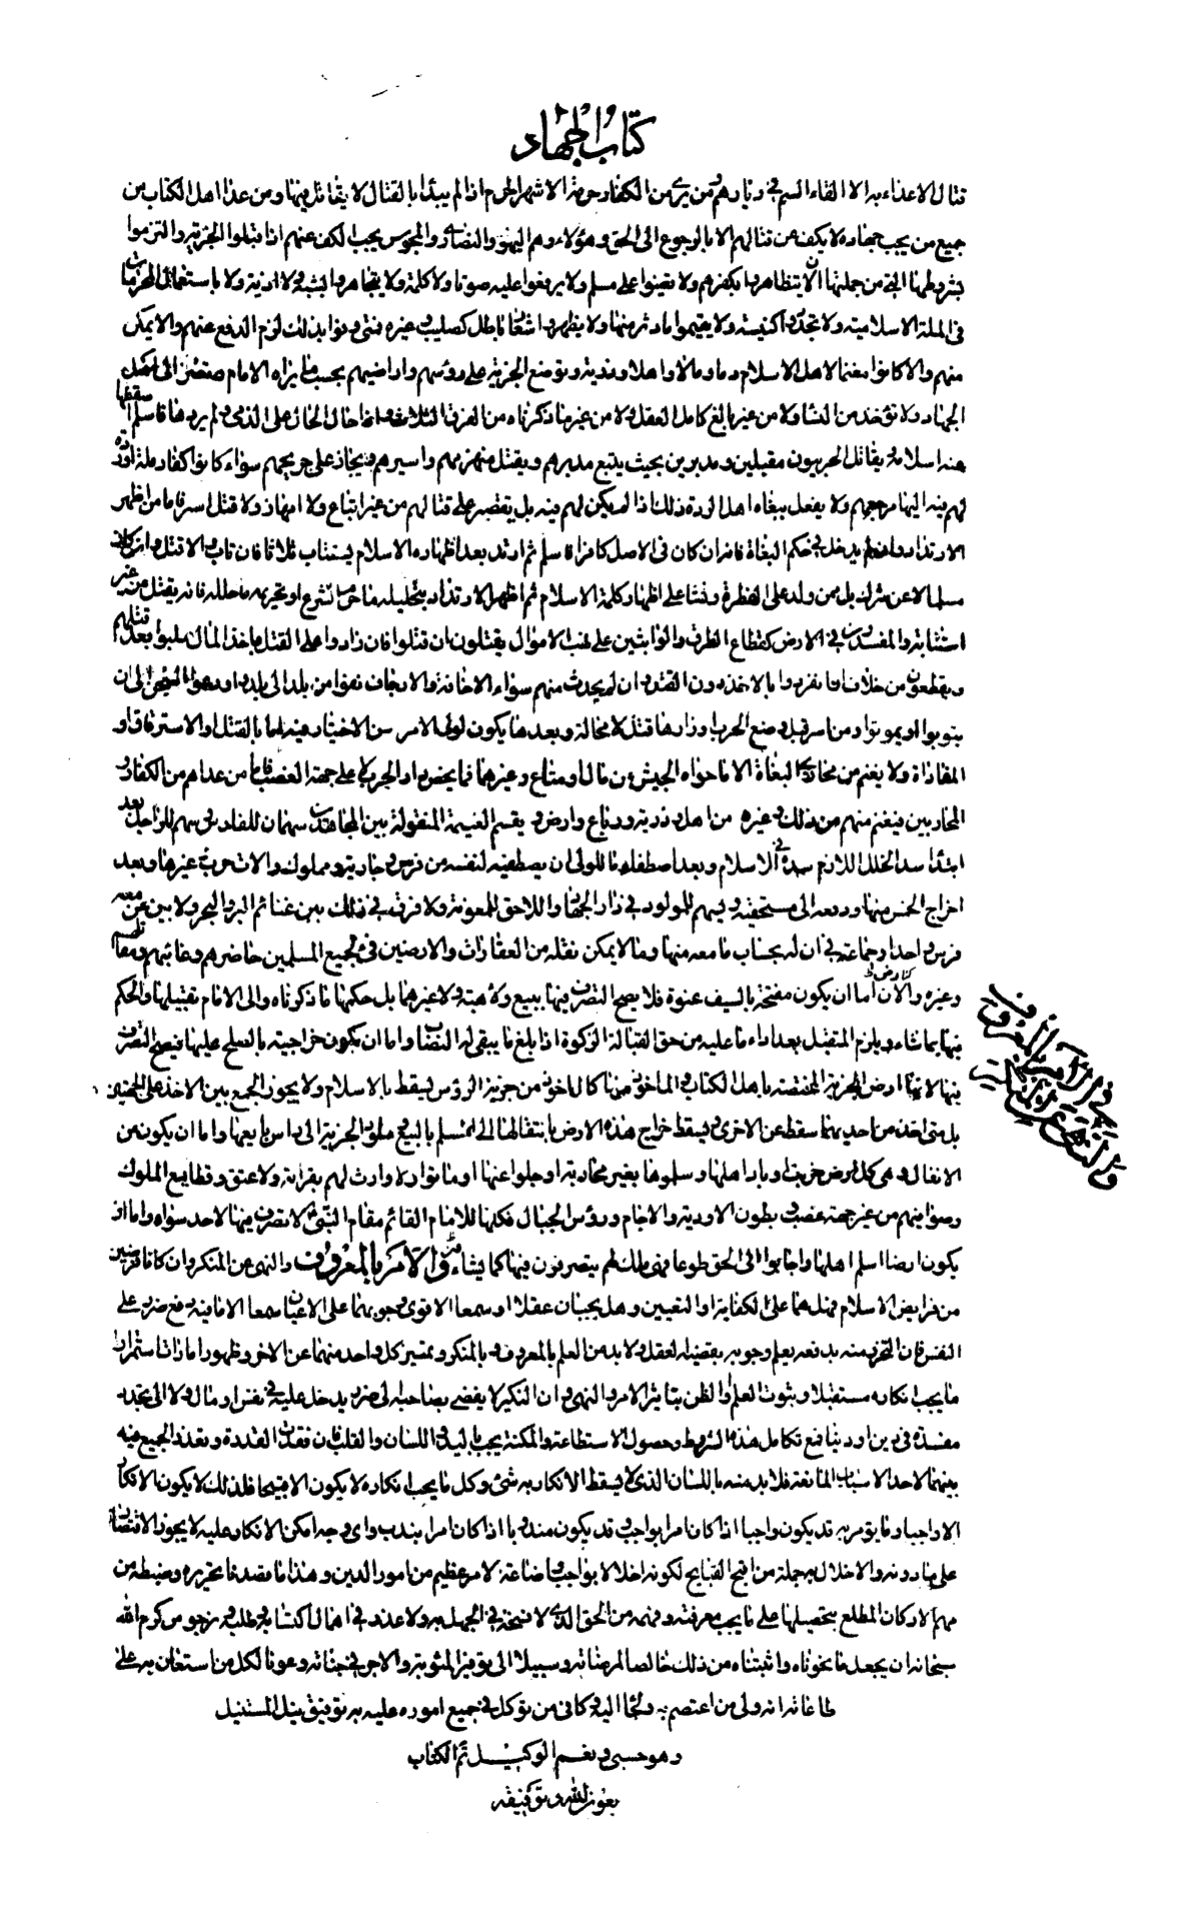 كتاب الجهاد
قتال الاعداء به الا القاء السم في ديارهم و من يرى من الكفار حرمة الاشهر الحرم اذا لم يبدأ بالقتال لا يقاتل فيها و من عدا اهل الكتاب من
جميع من يجب جهاده لا يكف عن قتالهم الا بالرجوع الى الحق و هؤلاء و هم اليهود و النصارى و المجوس يجب الكف عنهم اذا قبلوا الجزية و التزموا
بشروطها التي من جملتها الا ان يتظاهروا بكفرهم و لا يعينوا على مسلم و لا يرفعوا عليه صوتا و لا كلمة و لا يتجاهروا بسب و لا اذية و لا باستعمال المحرمات
في الملة الاسلامية و لا تجدد كنيسة و لا يقيموا ما دثر منها و لا يظهروا شعار باطل كصليب و غيره فمتى وفوا بذلك لزم الدفع عنهم و الا يمكن
منهم و الا كانوا مغنما لاهل الاسلام دما و مالا و اهلا و ذرية و توضع الجزية على رؤسهم و اراضيهم بحسب ما يراه الامام
الجهاد و لا تؤخذ من النساء و لا من غير بالغ كامل العقل و لا من غير ما ذكرناه من الفرق الثلاث و اذا حال الحال على الذمي و لم يردها فاسلم اسقطها
عنه اسلامه و يقاتل الحربيون مقبلين و مدبرين بحيث يتبع مدبرهم و يقتل منهزمهم و اسيرهم و يجاز على جريحهم سواء كانوا كفار ملة او ردة
لهم فيه اليها مرجعهم و لا يفعل ببغاة اهل الردة ذلك اذا لم يكن لهم فيه بل يقتصر على قتالهم من غير اتباع و لا اجهاز و لا قتل اسر فاما من اظهر
الارتداد و لم يدخل في حكم البغاة فانه ان كان في الاصل كافرا فاسلم ثم ارتد بعد اظهاره الاسلام يستتاب ثلاثا فان تاب و الا قتل و ان كان
مسلما لا عن شرك بل ممن ولد على الفطرة و نشا على اظهار كلمة الاسلام ثم اظهر الارتداد بتحليله ما حرمه الشرع او تحريمه ما حلله فانه يقتل من غير
استتابة و المفسدون في الارض كقطاع الطرق و الواثبين على نهب الاموال يقتلون ان قتلوا فان زادوا على القتل باخذ المال صلبوا بعد قتلهم
و يقطعون من خلاف ان تفردوا بالاخذ دون القتل و ان لم يحدث منهم سواء الاخافة و الارجاف نفوا من بلد الى بلد و اودعوا السجن الى ان
يتوبوا او يموتوا و من اسر قبل وضع الحرب اوزارها قتل لا محالة و بعدها يكون لولي الامر من الاختيار فيه اما بالقتل و الاسترقاق او
المفاداة و لا يغنم من محاربي البغاة الا ما حواه الجيش من مال و متاع و غيرهما فما يخص دار الحرب لا على جهة الغصب فاما من عداهم من الكفار و
المحاربين فيغنم منهم من ذلك و غيره من اهل و ذرية و رباع و ارض و يقسم الغنيمة المنقولة بين المجاهدين سهمان للفارس و سهم للراجل بعد
ابتداء سد الخلل اللازم سده في الاسلام و بعد اصطفاء ما للولي ان يصطفيه لنفسه من فرس و جارية و مملوك و آلات حرب و غيرها و بعد
اخراج الخمس منها و دفعه الى مستحقيه و يسهم للمولود في دار الجهاد و اللاحق للمعونة و لا فرق في ذلك بين غنائم البر و البحر و لا بين من معه
فرس واحد او جماعة في ان له بحساب ما معه منها و ما لا يمكن نقله من العقارات و الارضين فيء لجميع المسلمين حاضرهم و غائبهم
و غيره و الارض اما ان يكون مفتحة بالسيف عنوة فلا يصح التصرف فيها ببيع و لا هبة و لا غيرهما بل حكمها ما ذكرناه و الى الامام تقبيلها و الحكم
فيها بما شاء و يلزم المتقبل بعد اداء ما عليه من حق القبالة الزكوة اذا بلغ ما يبقى له النصاب و اما ان يكون خراجية بالصلح عليها فيصح التصرف
فيها لانها ارض الجزية المختصة باهل الكتاب و الماخوذ منها كالماخوذ من جزية الرؤس يسقط بالاسلام و لا يجوز الجمع بين الاخذ على الجهتين
بل متى اخذ من احديهما سقط عن الاخرى و يسقط خراج هذه الارض بانتقالها الى المسلم بالبيع و عليه الجزية الى راس بايعها و اما ان يكون من
الانفال و هي كل ارض خربت و باد اهلها و سلموها بغير محاربة او جلوا عنها او ماتوا و لا وارث لهم بقرابة و لا عتق و قطايع الملوك
و صوافيهم من غير جهة غصب و بطون الاودية و الاجام و رؤس الجبال فكلها للامام القائم مقام النبي لا تصرف فيها لاحد سواه و اما ان
يكون ارضا اسلم اهلها و اجابوا الى الحق طوعا فهي ملك لهم يتصرفون فيها كما يشاؤن و الامر بالمعروف و النهي عن المنكر و ان كانا فرضين
من فرايض الاسلام فهل هما على الكفاية او التعيين و هل يجبان عقلا او سمعا الاقوى وجوبهما على الاعيان سمعا الا ما فيه دفع ضرر على
النفس فان التحرز منه بدفعه يعلم وجوبه بقضية العقل و لا بد من العلم بالمعروف و بالمنكر و تميز كل واحد منهما عن الاخر و ظهور امارات استمرار
ما يجب انكاره مستقبلا و ثبوت العلم او الظن بتاثير الامر و النهي و ان النكير لا يفضي بصاحبه الى ضرر يدخل عليه في نفس او مال و لا الى تجدد
مفسدة في دين او دنيا فمع تكامل هذه الشروط و حصول الاستطاعة و المكنة يجب باليد و اللسان و القلب فان فقدت القدرة و تعذر الجمع فيه
بينهما لاحد الاسباب المانعة فلا بد منه باللسان الذي لا يسقط الانكار به شيء و كل ما يجب انكاره لا يكون الا قبيحا فلذلك لا يكون الانكار
الا واجبا و ما يؤمر به قد يكون واجبا اذا كان امرا بواجب و قد يكون مندوبا اذا كان امرا بندب و اي وجه امكن الانكار عليه لا يجوز الاقتصار
على ما دونه و الاخلال به جملة من اقبح القبايح لكونه اخلالا بواجب و اضاعة لامر عظيم من امور الدين و هذا ما قصدنا تحريره و ضبطه من
مهم الاركان المطلع بتحصيلها على ما يجب معرفته و فهمه من الحق الذي لا فسحة في الجهل به و لا عذر في اهمال اكتسابه و طلبه و نرجو من كرم الله
سبحانه ان يجعل ما نحوناه و اثبتناه من ذلك خالصا لمرضاته و سبيلا الى توفير المثوبة و الاجر في جنانه و عونا لكل من استعان به على
طاعاته انه ولي من اعتصم به و لجا اليه و كافي من توكل في جميع اموره عليه به توفيق نيل المستنيل
و هو حسبي و نعم الوكيل تم الكتاب
بعون الله و توفيقه
في الامر بالمعروف
و النهي عن المنكر